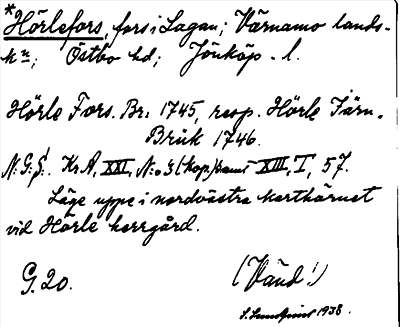 *Hörlefors, fors i Lagan; Värnamo lands-
kn; Östbo hd; Jönköp. l.
Hörle Fors. Br. 1745, resp. Hörle Järn-
Bruk 1746.
N: G: Kr.A, XXI, N:o 3 (kop.) samt XIII, I, 57.
Läge uppe i nordvästra karthörnet
vid Hörle herrgård.
G. 20.
(Vänd!)
S. Sundquist 1938.